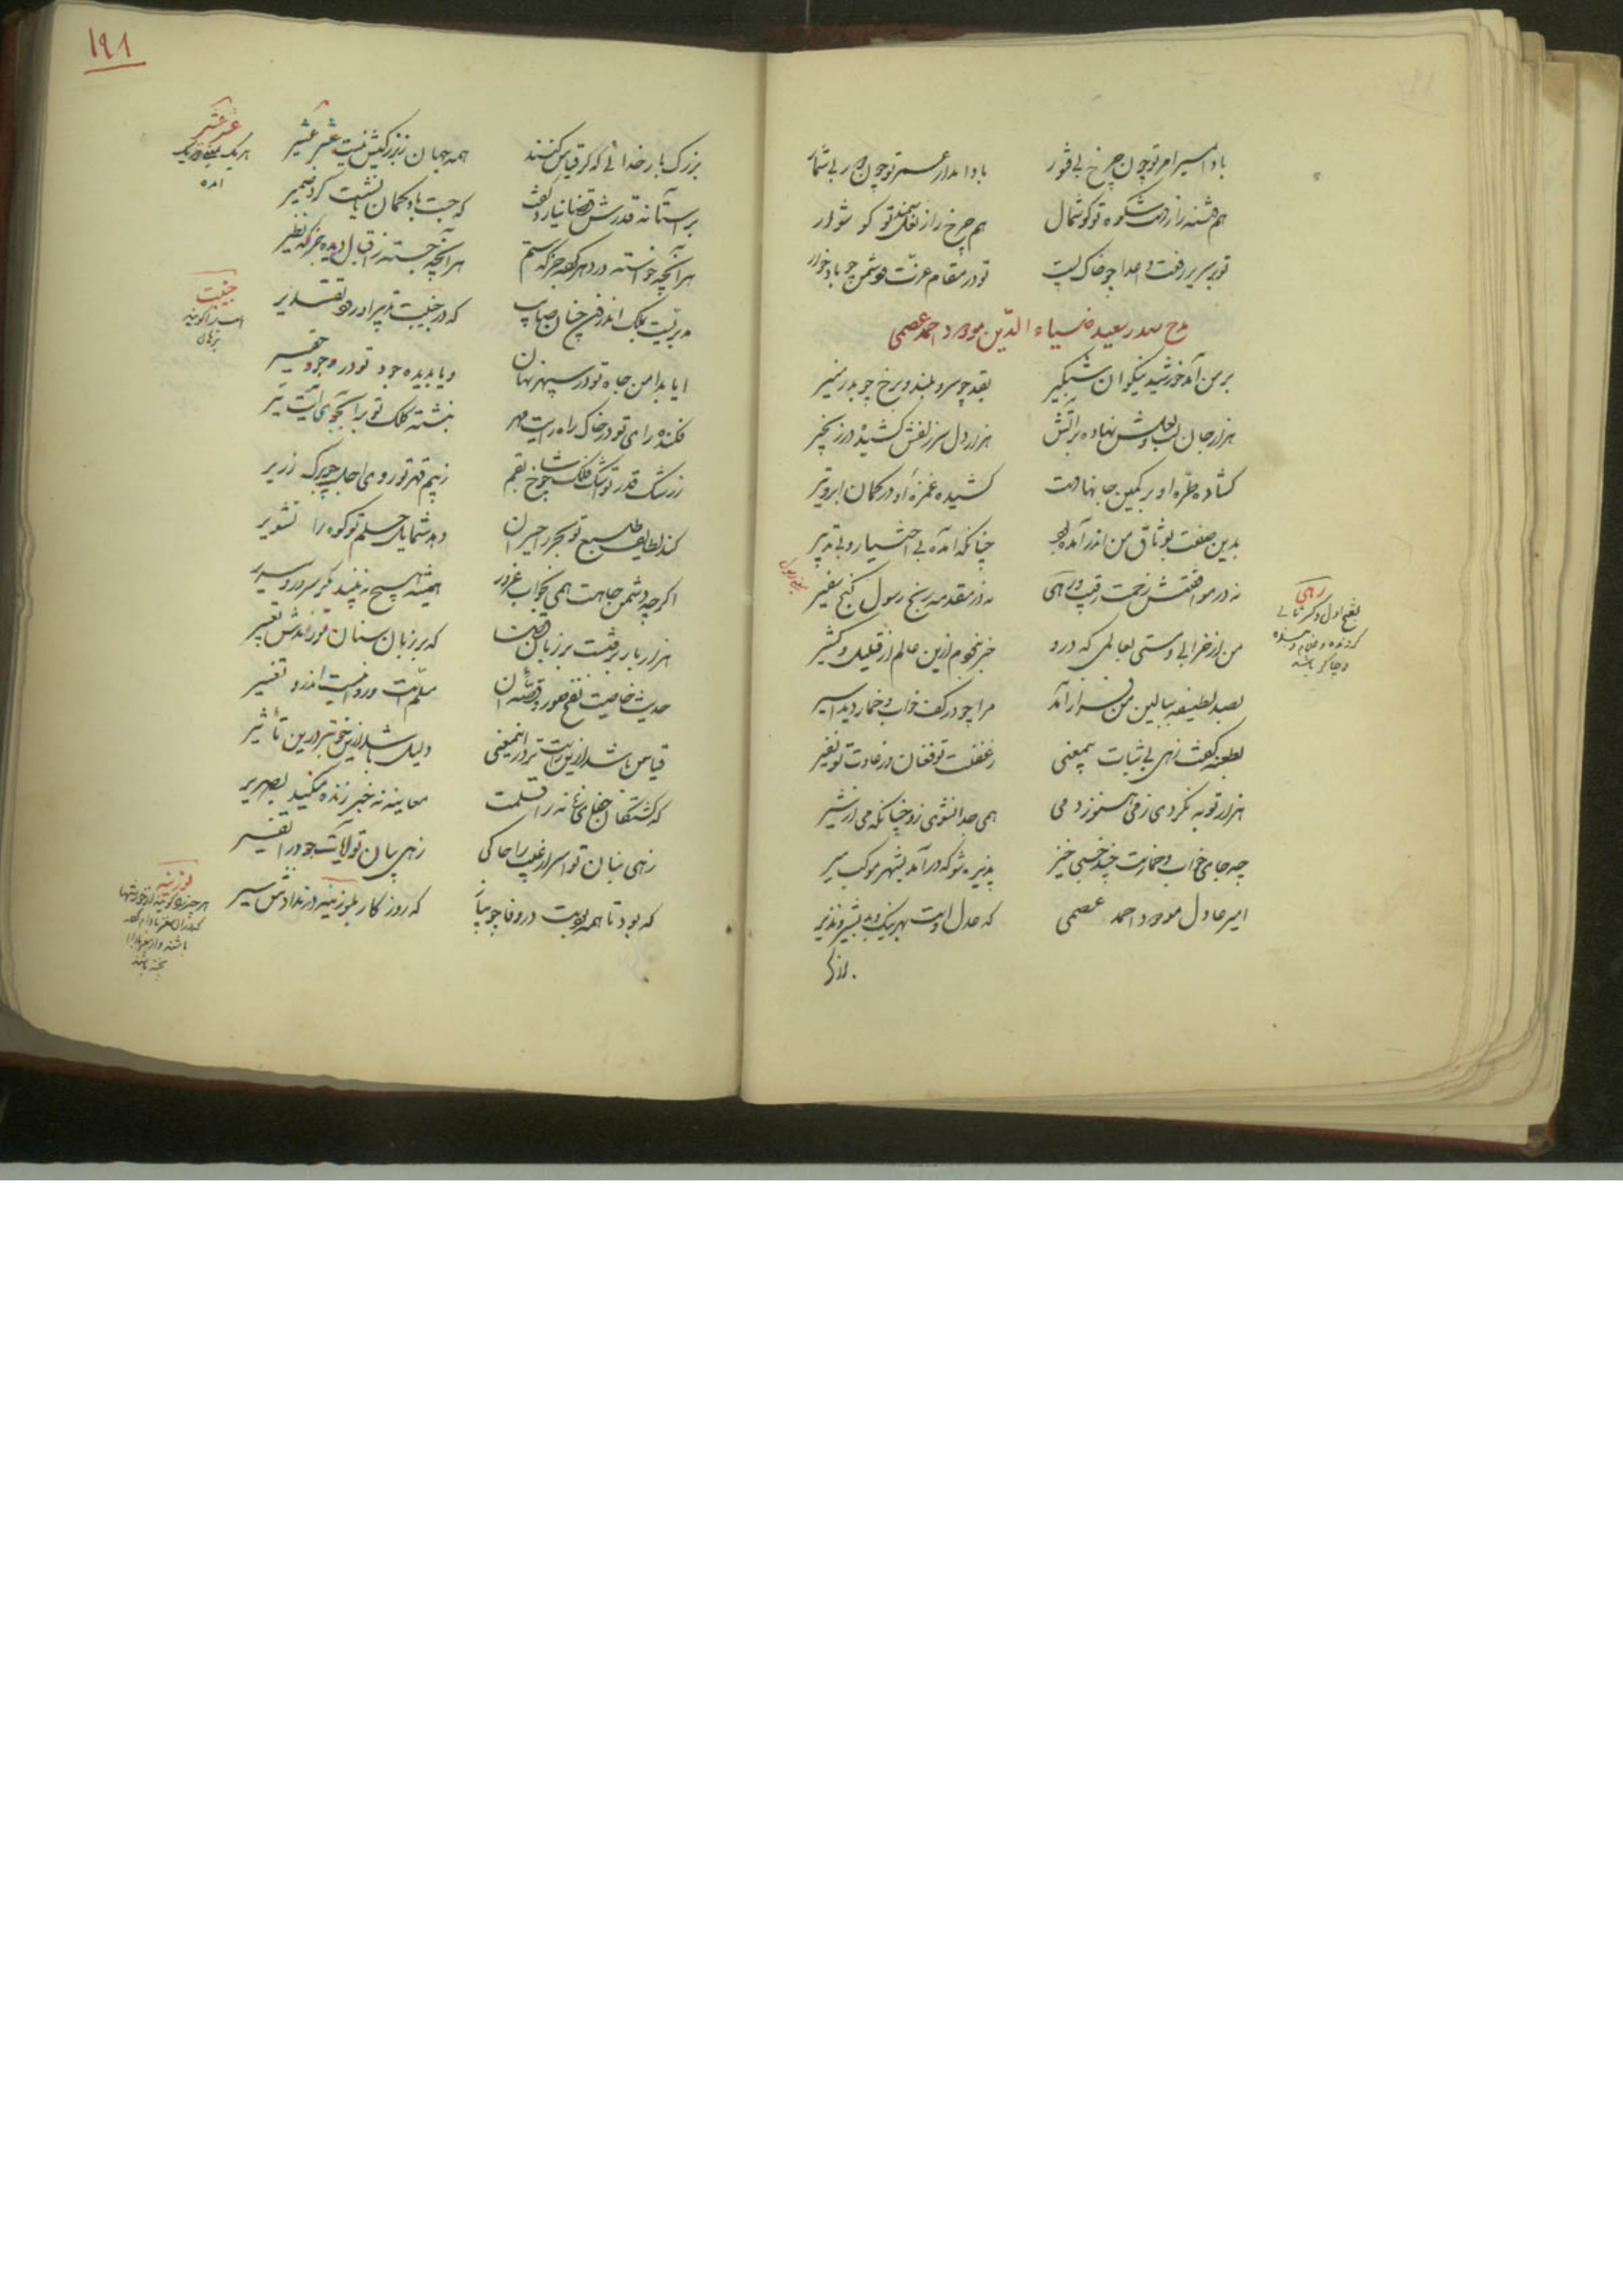 بادا مسیر امر تو چون چرخ بی فتور
بادا مدار عمر تو چون دور بی شمار
هم فتنه را ز دست شکوه تو گوشمال
هم چرخ را ز نعل سمند تو گوشوار
تو بر سریر رفعت و اعدا چو خاک پست
تو در مقام عزت و دشمن چو باد خوار
مدح صدر سعید ضیاء الدین مودود احمد عصمی
بر من آمد خورشید نیکوان شبگیر
بقد چو سرو بلند و برخ چو بدر منیر
هزار جان لب لعلش نهاده بر آتش
هزار دل سر زلفش کشیده در زنجیر
گشاده طره او بر کمین جانها دست
کشیده غمزه او در کمان ابرو تیر
بدین صفت بوثاق من اندر آمده بود
چنانکه آمده بی اختیار و بی تدبیر
نه در موافقتش زحمت رقیب و رهی
نه در مقدمه رنج رسول و کنج سفیر
رهی
من از خرابی و مستی بعالمی که درو
خبر نبود ازین عالم از قلیل و کثیر
بصد لطیفه ببالین من فراز آمد
مرا چو در کف خواب و خمار دید اسیر
بطعنه گفت زهی بی ثبات بی معنی
ز غفلت تو فغان و ز عادت تو نفیر
هزار توبه نکردی ز می هنوز دمی
همی جدا نشوی زو چنانکه می از شیر
چه جای خواب و خمارست چند خسبی خیز
پذیره شو که درآمد بشهر موکب میر
امیر عادل مودود احمد عصمی
که عدل اوست بهر نیک و بد بشیر و نذیر
۱۹۸
بزرگ بار خدائی که گر قیاس کنند
همه جهان ز بزرگیش نیست عشر عشیر
عشر عشیر
بر آستانه قدرش قضا نیارد گفت
که جست باد گمان یا نشست گرد ضمیر
هر آنچه خواسته در دهر کرده جز که ستم
هر آنچه جسته ز اقبال دیده جز که نظیر
مدبریست بملک اندرون چنان صایب
که در جنیبت تدبیر او رود تقدیر
جنیبت
ایا بدامن جاه تو در سپهر نهان
و یا بدیده جود تو در وجود حقیر
فکنده رای تو در خاک راه رایت مهر
نبشته کلک تو بر آب جوی آیت تیر
ز رشک قدر تو اشک فلک شد چو بقم
ز بیم قهر تو روی اجل چو برگ زریر
کند لطایف طبع تو بحر را حیران
دهد شمایل حلم تو کوه را تشویر
اگرچه دشمن جاهت همی بخواب غرور
همیشه هیچ نبیند مگر سرور و سریر
هزار بار برفتست بر زبان قضا
که بر زبان سنان تو راندش تعبیر
حدیث خاصیت نفخ صور و قصه آن
مسلمست و روا نیست اندرو تفسیر
قیاس باشد ازین راست تر درین معنی
دلیل باشد ازین خوبتر درین تأثیر
که کشتگان جفای زمانه را قلمت
معاینه نه خبر زنده میکند بصریر
زهی بنان تو اسرار غیب را حاکی
زهی بیان تو آیات جود را تفسیر
که بود تا همه بودست در وفا چو پیاز
که روزگار بلوزینه در ندادش سیر
لوزینه